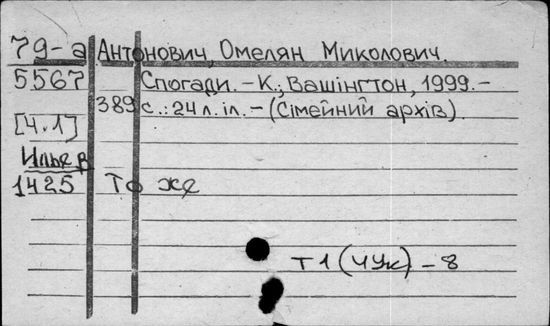 79-а Антонович, Омелян Миколович.
5567 Спогади. - К.; Вашінгтон, 1999. -
389 с.: 24 л. іл. - (Сімейний архів).
[Ч.1]
Ильев
1425 То же
Т1(4Ук) - 8